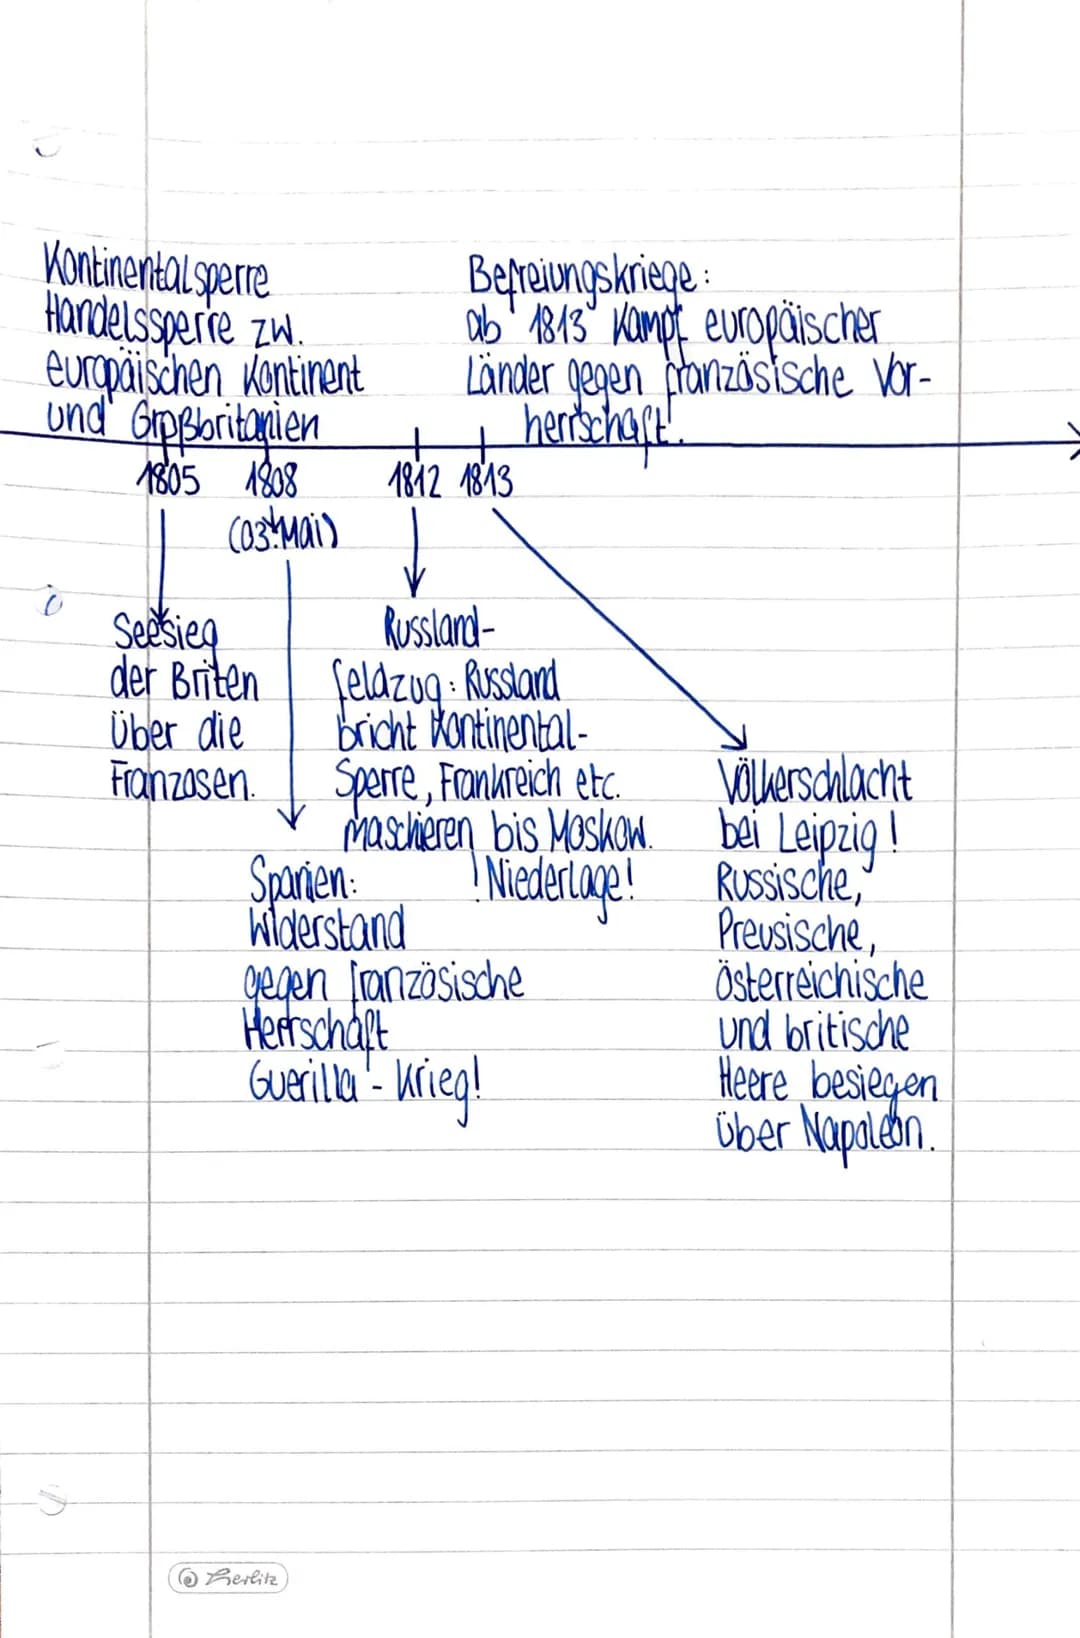 Kontinentalsperre
Handelssperre zw.
europäischen Kontinent
und Großbritanien
Befreiungskriege:
ab 1813 Kampf europäischer
Länder gegen französische Vor-
herrschaft!
1805 1808 1812 1813
(03. Mai)
Seesieg
der Briten
über die
Franzosen.
Russland-
feldzug: Russland
bricht Kontinental-
Sperre, Frankreich etc.
maschieren bis Moskow.
! Niederlage!
Spanien:
Widerstand
gegen französische
Herrschaft
Guerilla - Krieg!
Völkerschlacht
bei Leipzig!
Russische,
Preusische,
Österreichische
und britische
Heere besiegen
über Napoleon.
herlitz